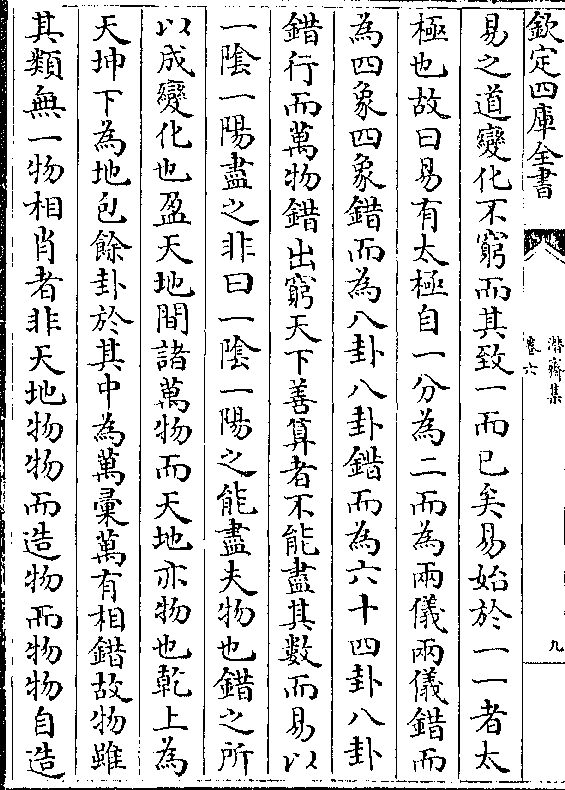 欽定四庫全書
潛齋集
卷六
九
易之道變化不窮而其致一而已矣易始於一一者太
極也故曰易有太極自一分為二而為兩儀兩儀錯而
為四象四象錯而為八卦八卦錯而為六十四卦八卦
錯行而萬物錯出窮天下善算者不能盡其數而易以
一陰一陽盡之非曰一陰一陽之能盡夫物也錯之所
以成變化也盈天地間諸萬物而天地亦物也乾上為
天坤下為地包餘卦於其中為萬彚萬有相錯故物雖
其類無一物相肖者非天地物物而造物而物物自造